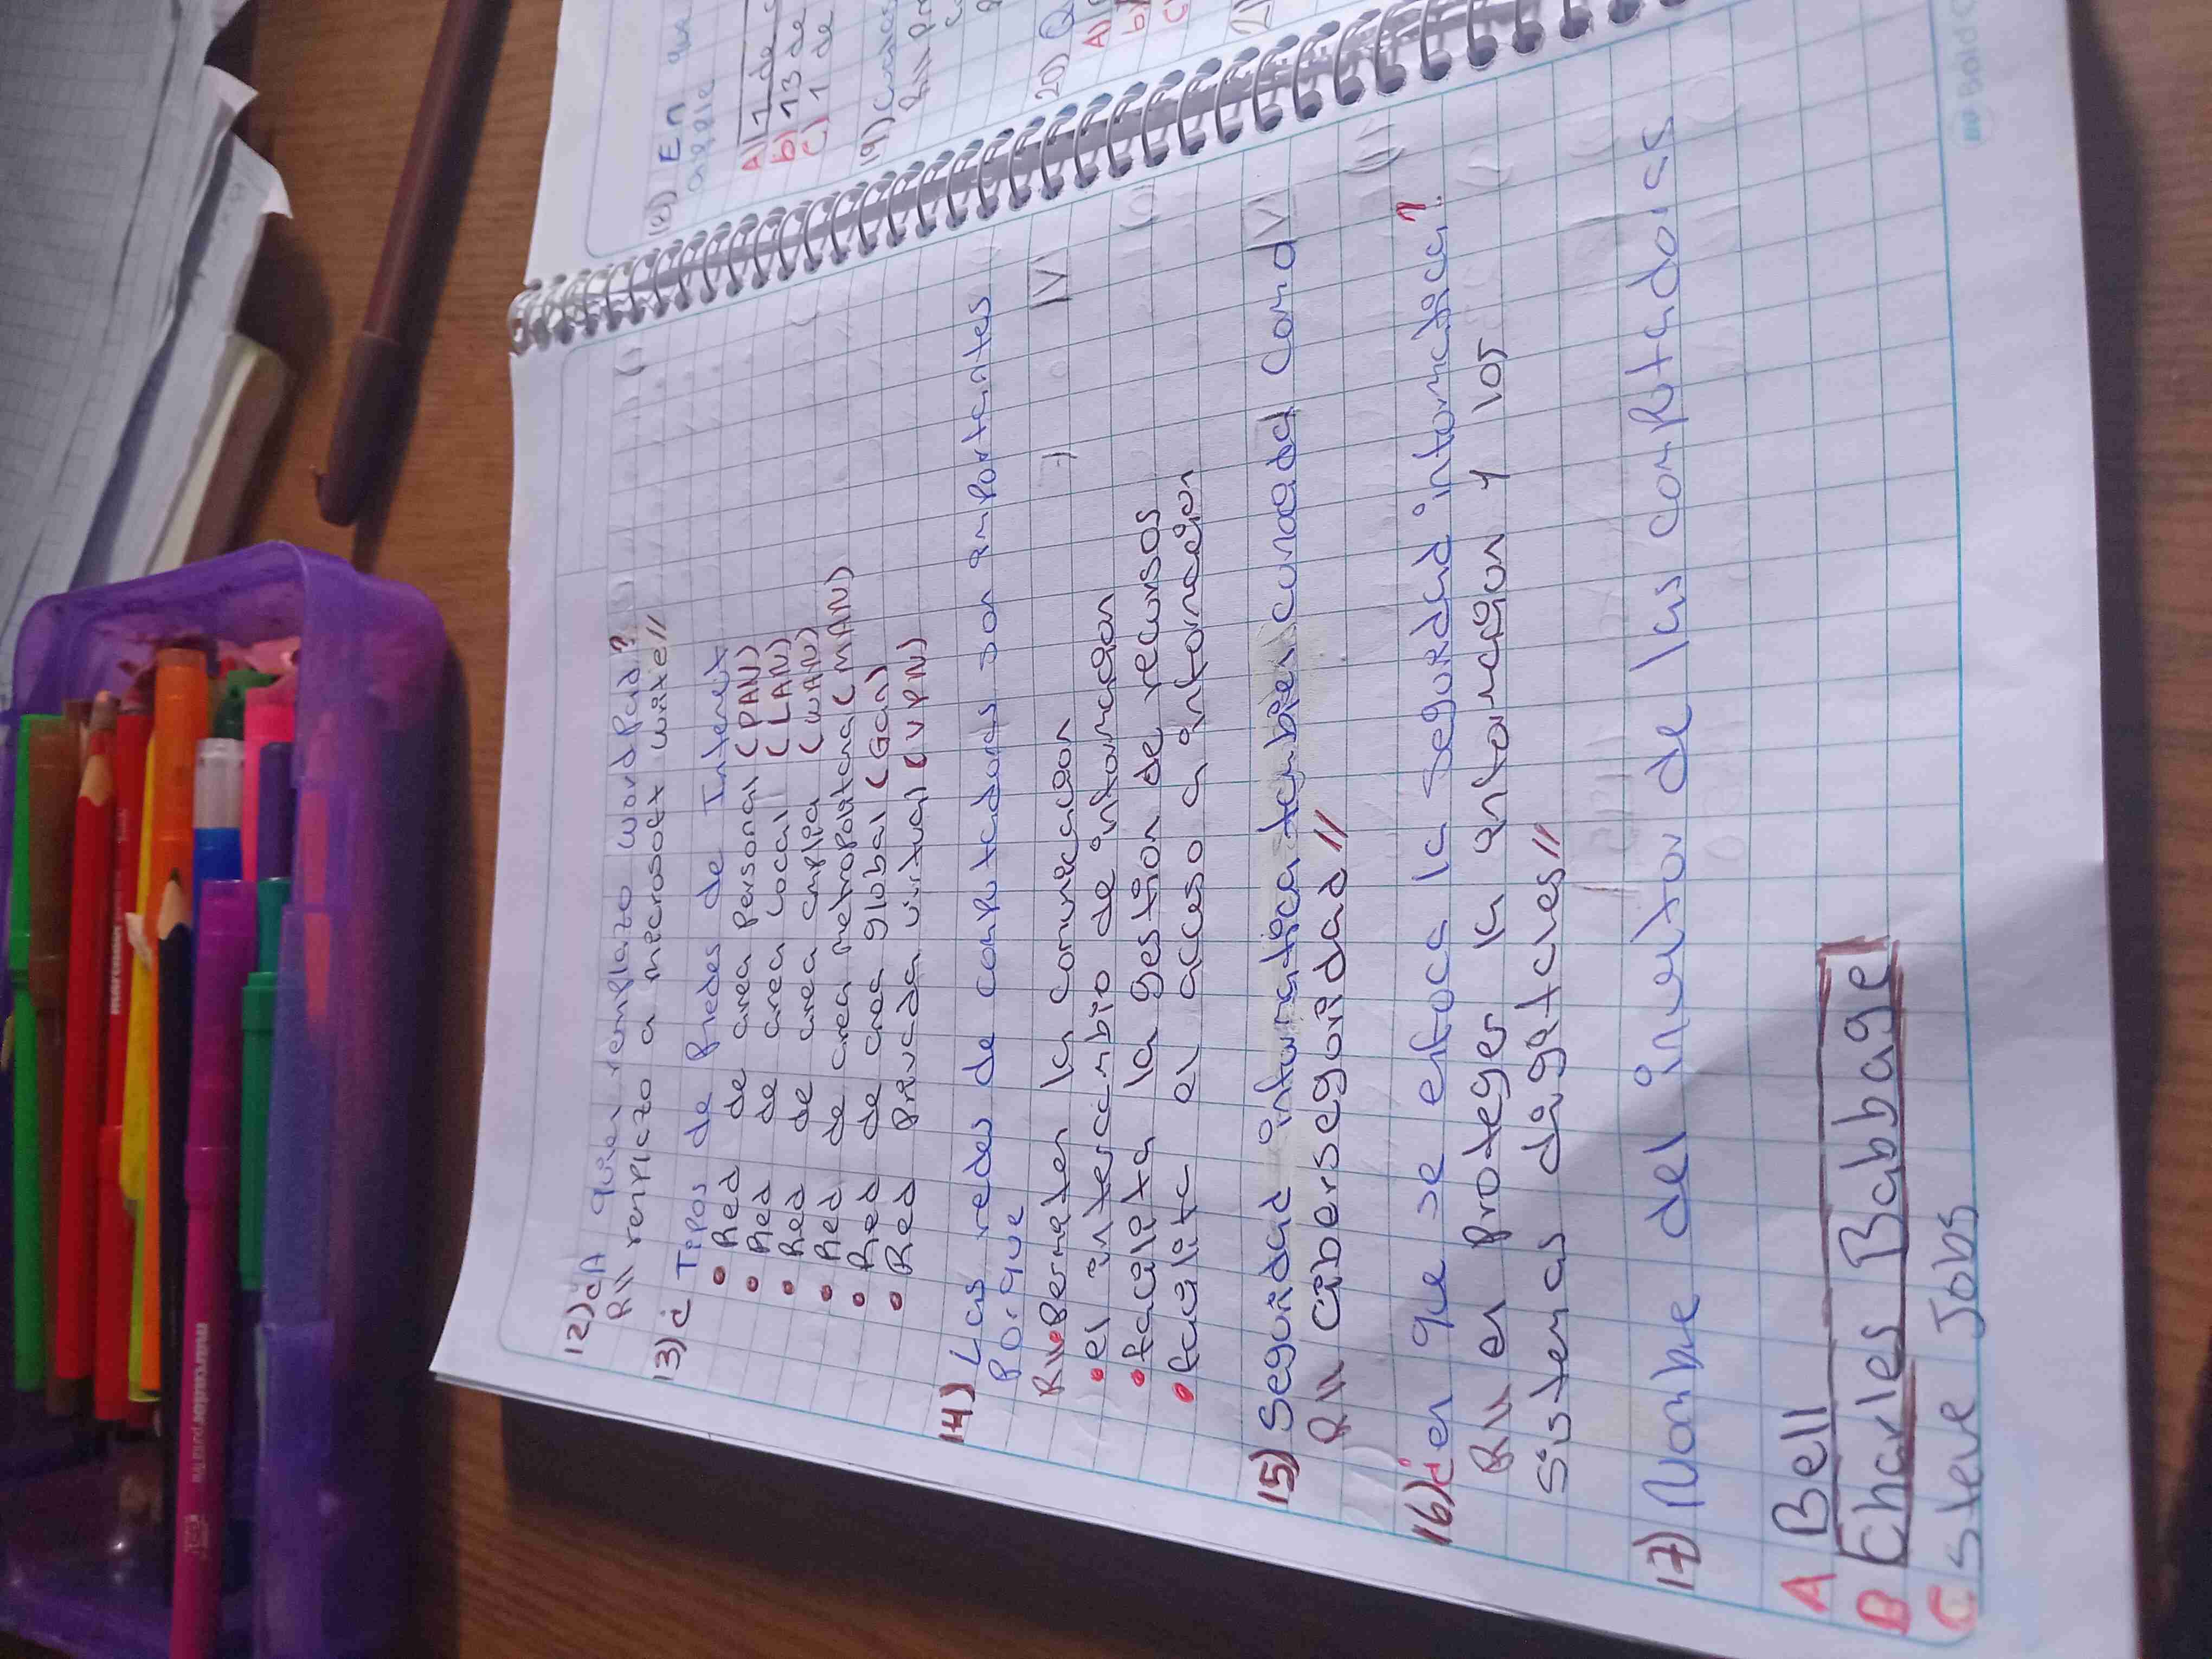 12) ¿A quien remplazo wordpad?
R// remplazo a microsoft write//
13) ¿ Tipos de Riedes de Internet
• Red de area Personal (PAN)
• Red de area Local (LAN)
• Red de area amplia (WAN)
• Red de area metropolitana (MAN)
• Red de area global (Gan)
• Red Privada virtual (VPN)
14) Las redes de computadores son importantes
Porque
R// • Permiten la comunicacion
• el intercambio de informacion
• facilita la gestion de recursos
• facilita el acceso a informacion
15) Seguridad informatica tambien conocida Como
R// Ciberseguridad //
16) ¿en que se enfoca la seguridad informatica?
R// en proteger la informacion y los
Sistemas digitales//
17) Nombre del inventor de las computadoras
A Bell
B Charles Babbage
C Steve Jobs
18) En
A) 1 de
b) 13 de
c) 1 de
19)
R//
20)
A)
b)
c)
21)